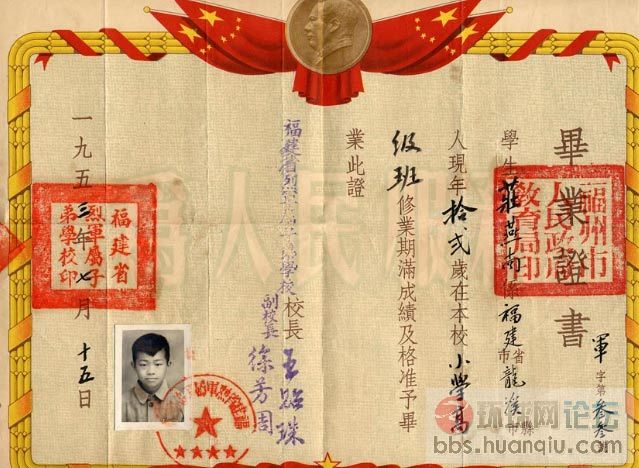 畢業證書
軍字第叁叁號
學生莊燕南係福建省市龍溪縣市
人現年拾弍歲在本校小學高
级班修業期滿成績及格准予畢
業此證
校長
副校長
徐芳周
一九五三年七月十五日
福州市人民政府教育局印
福建省烈軍屬子弟學校印
環球网论坛
bbs.huanqiu.com